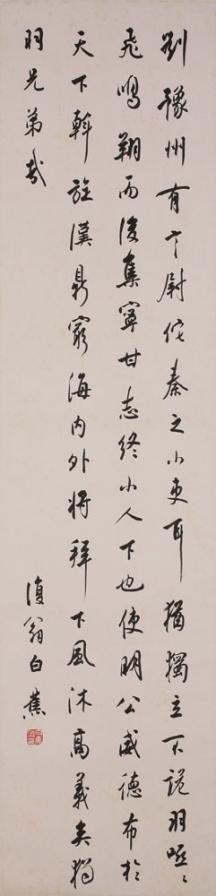 劉豫州有言尉佗秦之小吏耳猶獨立不詭羽啞〻
飛鳴翔而後集寧甘志終小人下也使明公威德布於
天下斡旋漢鼎窮海内外將拜下風沐高義矣猶
羽兄弟哉
復翁白蕉